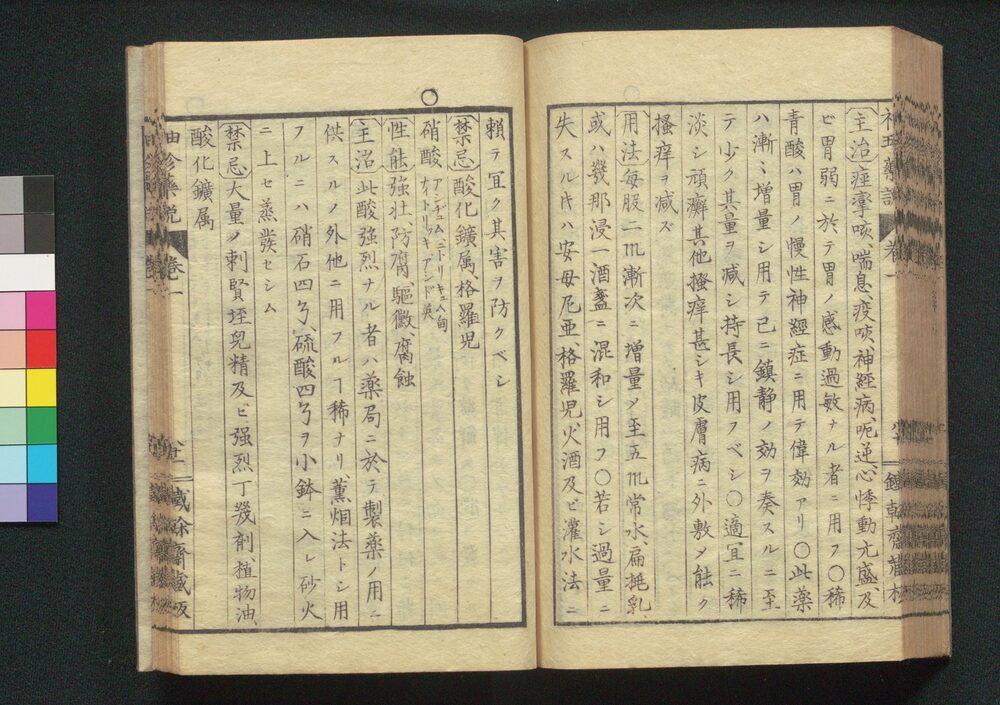 〔主治〕痙攣咳、喘息、疫咳、神経病、呃逆、心悸動亢盛、及
ビ胃弱ニ於テ胃ノ感動過敏ナル者ニ用フ〇稀
青酸ハ胃ノ慢性神経症ニ用テ偉効アリ〇此薬
ハ漸々増量シ用テ已ニ鎮静ノ効ヲ奏スルニ至
テ少ク其量ヲ减シ持長シ用フベシ〇適宜ニ稀
淡シ頑癬其他搔痒甚シキ皮膚病ニ外敷〆能ク
搔痒ヲ减ズ
〔用法〕毎服一♏漸次ニ増量〆至五♏常水、扁桃乳、
或ハ幾那浸一酒盞ニ混和シ用フ〇若シ過量ニ
失スル𪜈ハ安母尼亜、格羅児火酒及ビ灌水法ニ
頼テ冝ク其害ヲ防クベシ
〇
〔禁忌〕酸化鑛属、格羅児
硝酸
〔性能〕強壮、防腐、駆黴、腐蝕
〔主治〕此酸強烈ナル者ハ薬局ニ於テ製薬ノ用ニ
供スルノ外他ニ用フルヿ稀ナリ薫烟法トシ用
フルニハ硝石四ゟ、硫酸四ゟヲ小鉢ニ入レ砂火
ニ上セ蒸発セシム
〔禁忌〕大量ノ刺賢垤児精及ビ強烈丁幾剤、植物油、
酸化鑛属
巻一